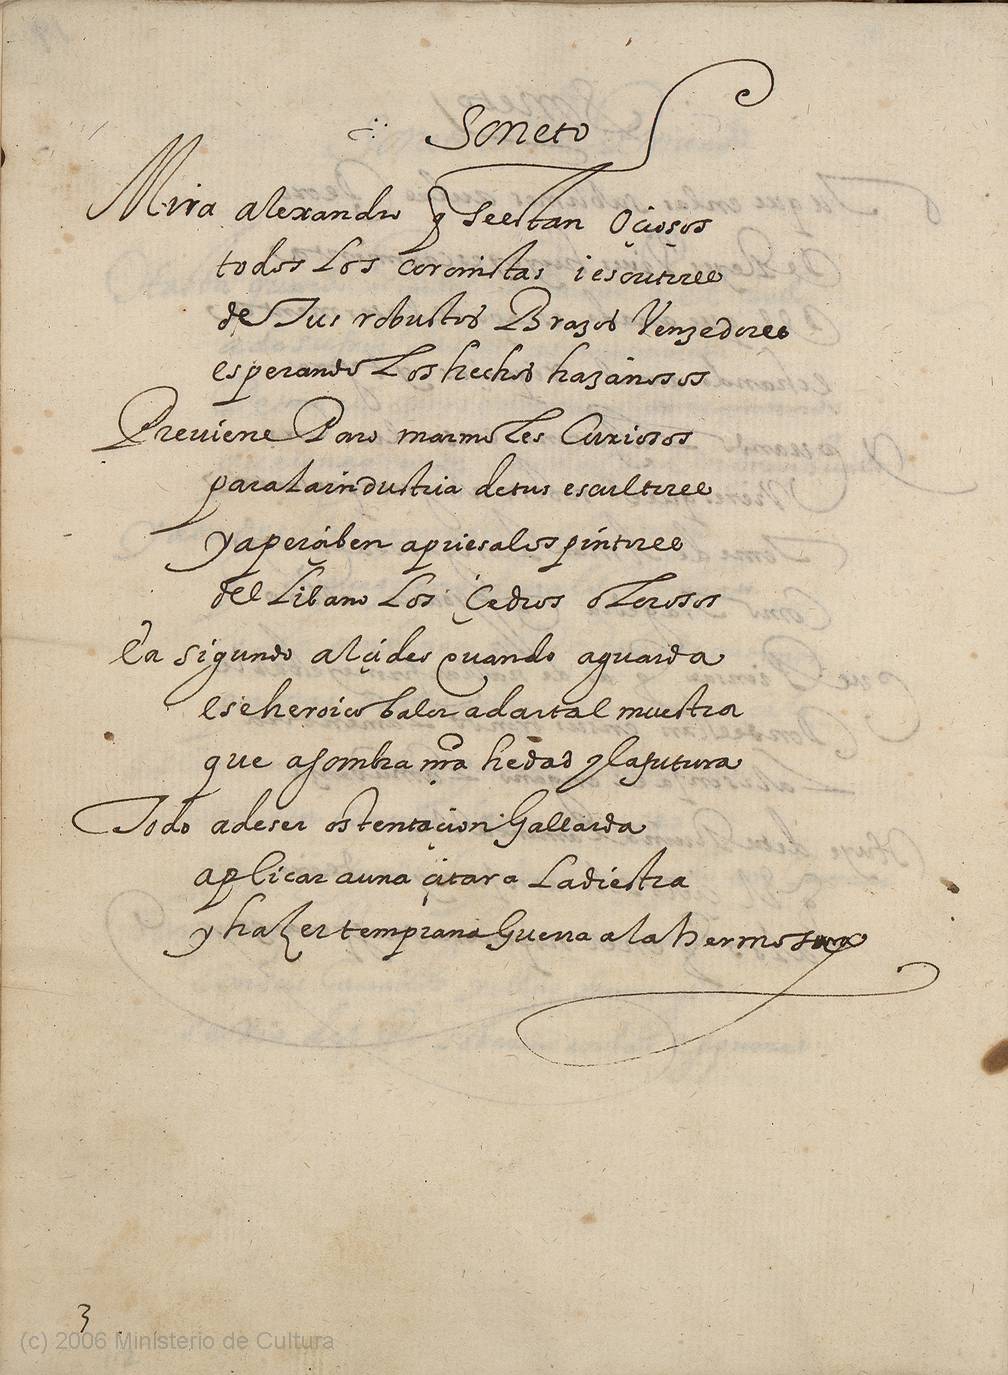 Soneto
Mira alexandro q seestan Oçiosos
todos Los coronistas i escritores
de Tus robustos Brazos Venzedores
esperando Los hechos hazanosos
Preuiene Paro marmoles Curiosos
para La industria de tus escultores
y aperciben apriesa los pintores
del Libano Los Çedros olorosos
Ea sigundo alçides quando aguarda
ese heroico balor a dar tal muestra
que asombra nra hedad y la futura
Todo a de ser ostentaçion Gallarda
aplicar a una çitara La diestra
y hazer temprana Guerra a la hermosura
3
(c) 2006 Ministerio de Cultura